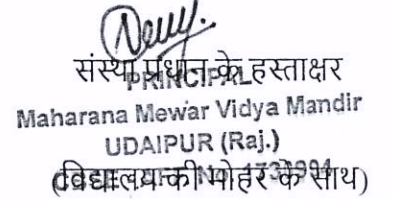 संस्था प्रधान के हस्ताक्षर
PRINCIPAL
Maharana Mewar Vidya Mandir
UDAIPUR (Raj.)
(विद्यालय की मोहर के साथ)